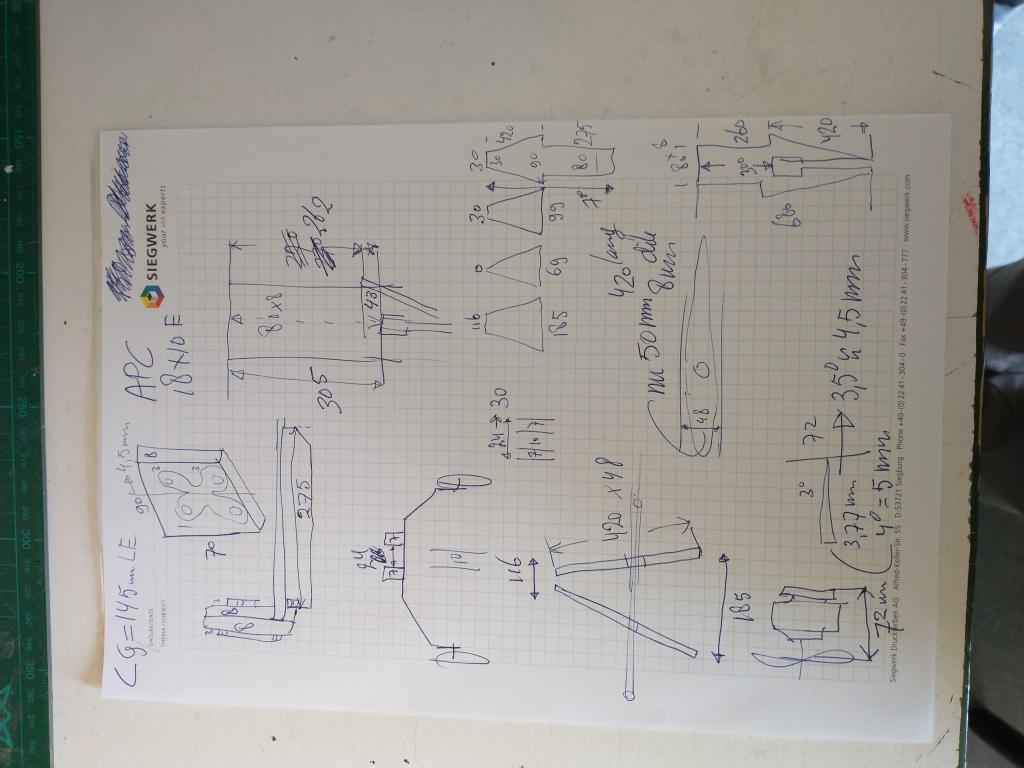 Cg=145mm LE
APC
18x10 E
SIEGWERK
your ink experts
DATUM/DATE
THEMA/SUBJECT
90 → 4,5mm
70
3
B
8
8
3
275
305
80x8
262
43
24
7
7
10
24 → 30
7 16 7
116
185
69
0
99
30
30
30
420
90
80
275
116
420 x 48
185
420 lang
50mm
8mm
48
80 x 8
260
30°
680
420
72mm
3°
72
3,77mm
3,5° 4,5mm
4° = 5mm
Siegwerk Druckfarben AG · Alfred-Keller-Str. 55 · D-53721 Siegburg · Phone +49-(0)22 41-304-0 · Fax +49-(0)22 41-304-777 www.siegwerk.com